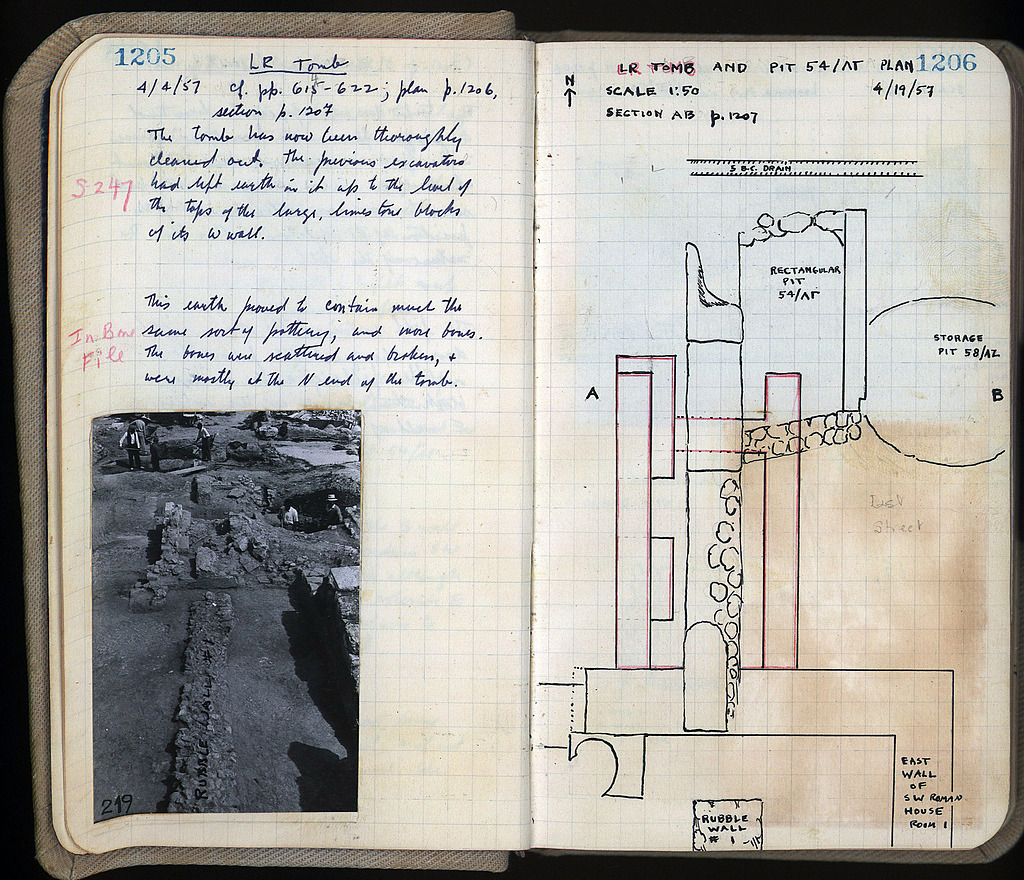 1205
LR Tomb
4/4/57 cf. pp. 615-622; plan p.1206,
section p.1207
The tomb has now been thoroughly
cleaned out. The previous excavators
S 247
had left earth in it up to the level of
the tops of the large, limestone blocks
of its W wall.
This earth proved to contain much the
In Bone
File
same sort of pottery, and more bones.
The bones were scattered and broken, +
were mostly at the N end of the tomb.
RUBBLE WALL #1
219
1206
LR TOMB AND PIT 54/ΛΓ PLAN
N
SCALE 1:50
4/19/57
SECTION AB p.1207
5 B.C. DRAIN
RECTANGULAR
PIT
54/ΛΓ
STORAGE
PIT 58/ΛΖ
A
B
East
Street
EAST
WALL
OF
SW ROMAN
HOUSE
ROOM 1
RUBBLE
WALL
# 1